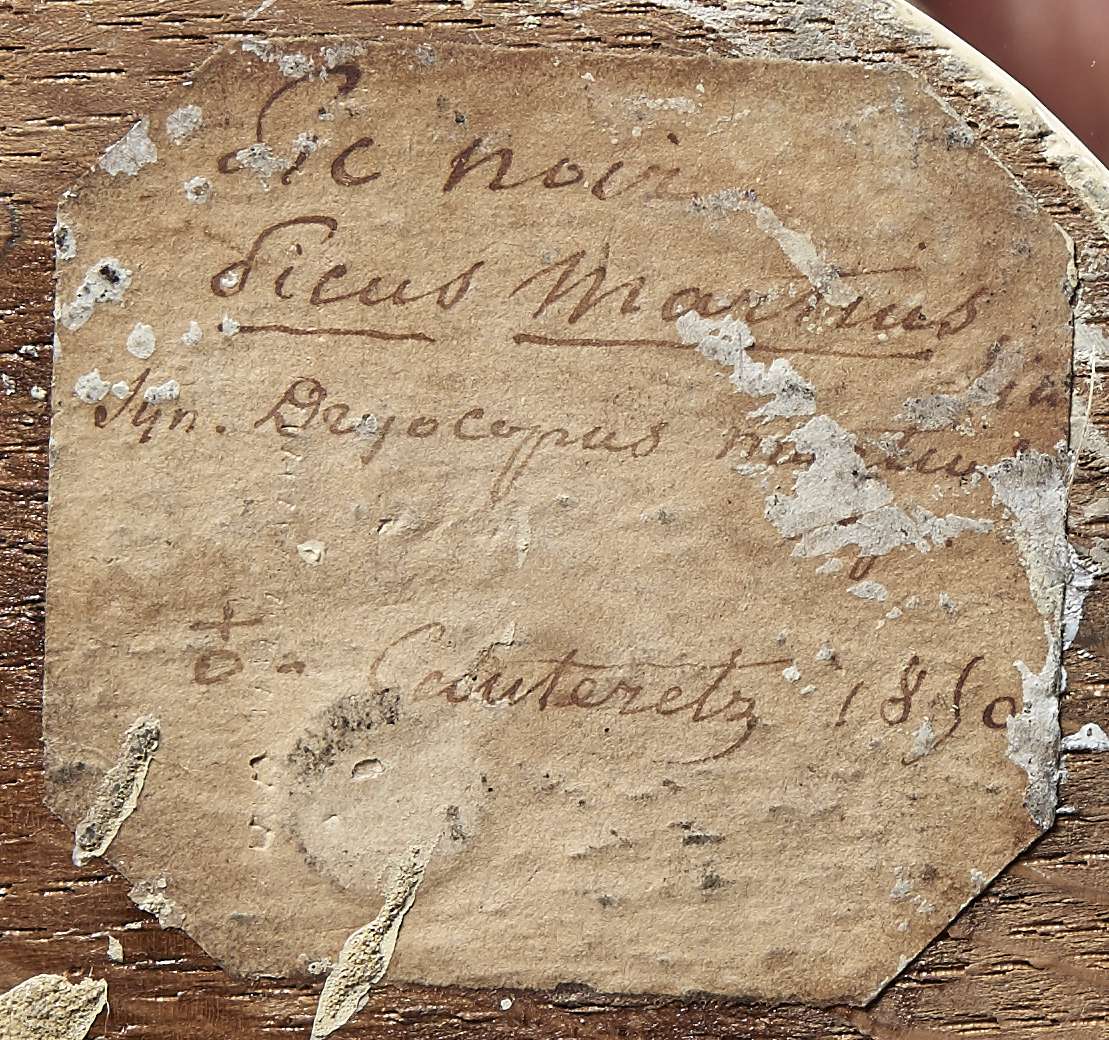 Pic noir
Picus Martius
Syn. Dryocopus martius
Cauteretz 1850